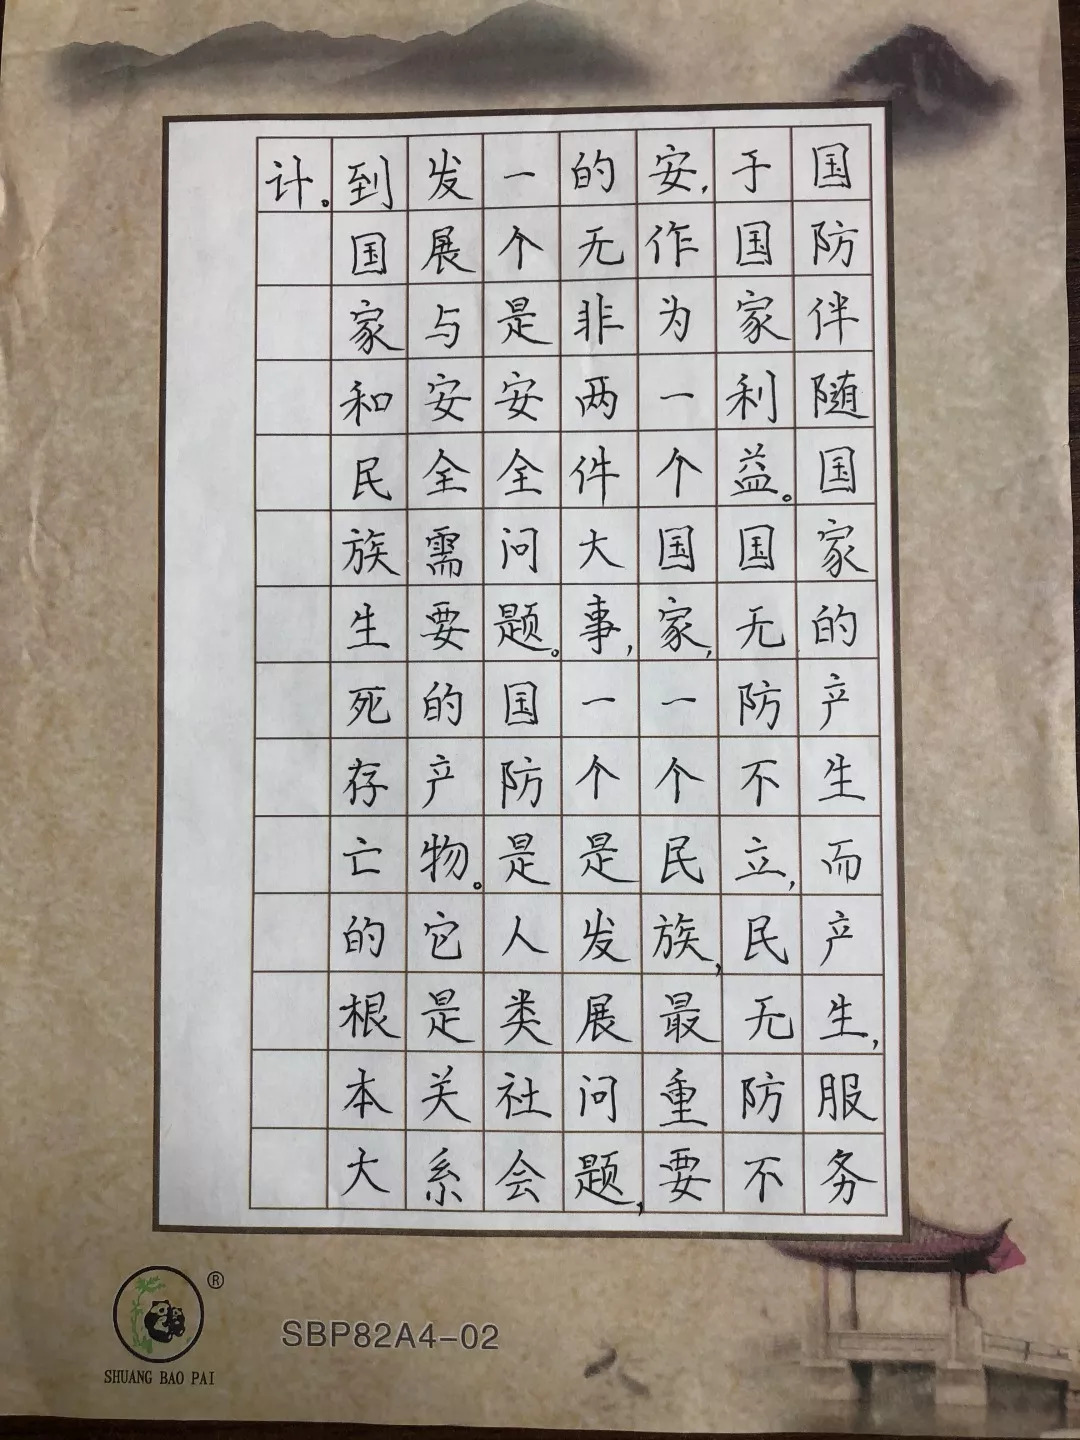 国防伴随国家的产生而产生,服务
于国家利益。国无防不立,民无防不
安,作为一个国家,一个民族,最重要
的无非两件大事,一个是发展问题,
一个是安全问题。国防是人类社会
发展与安全需要的产物。它是关系
到国家和民族生死存亡的根本大
计。
®
SHUANG BAO PAI
SBP82A4-02